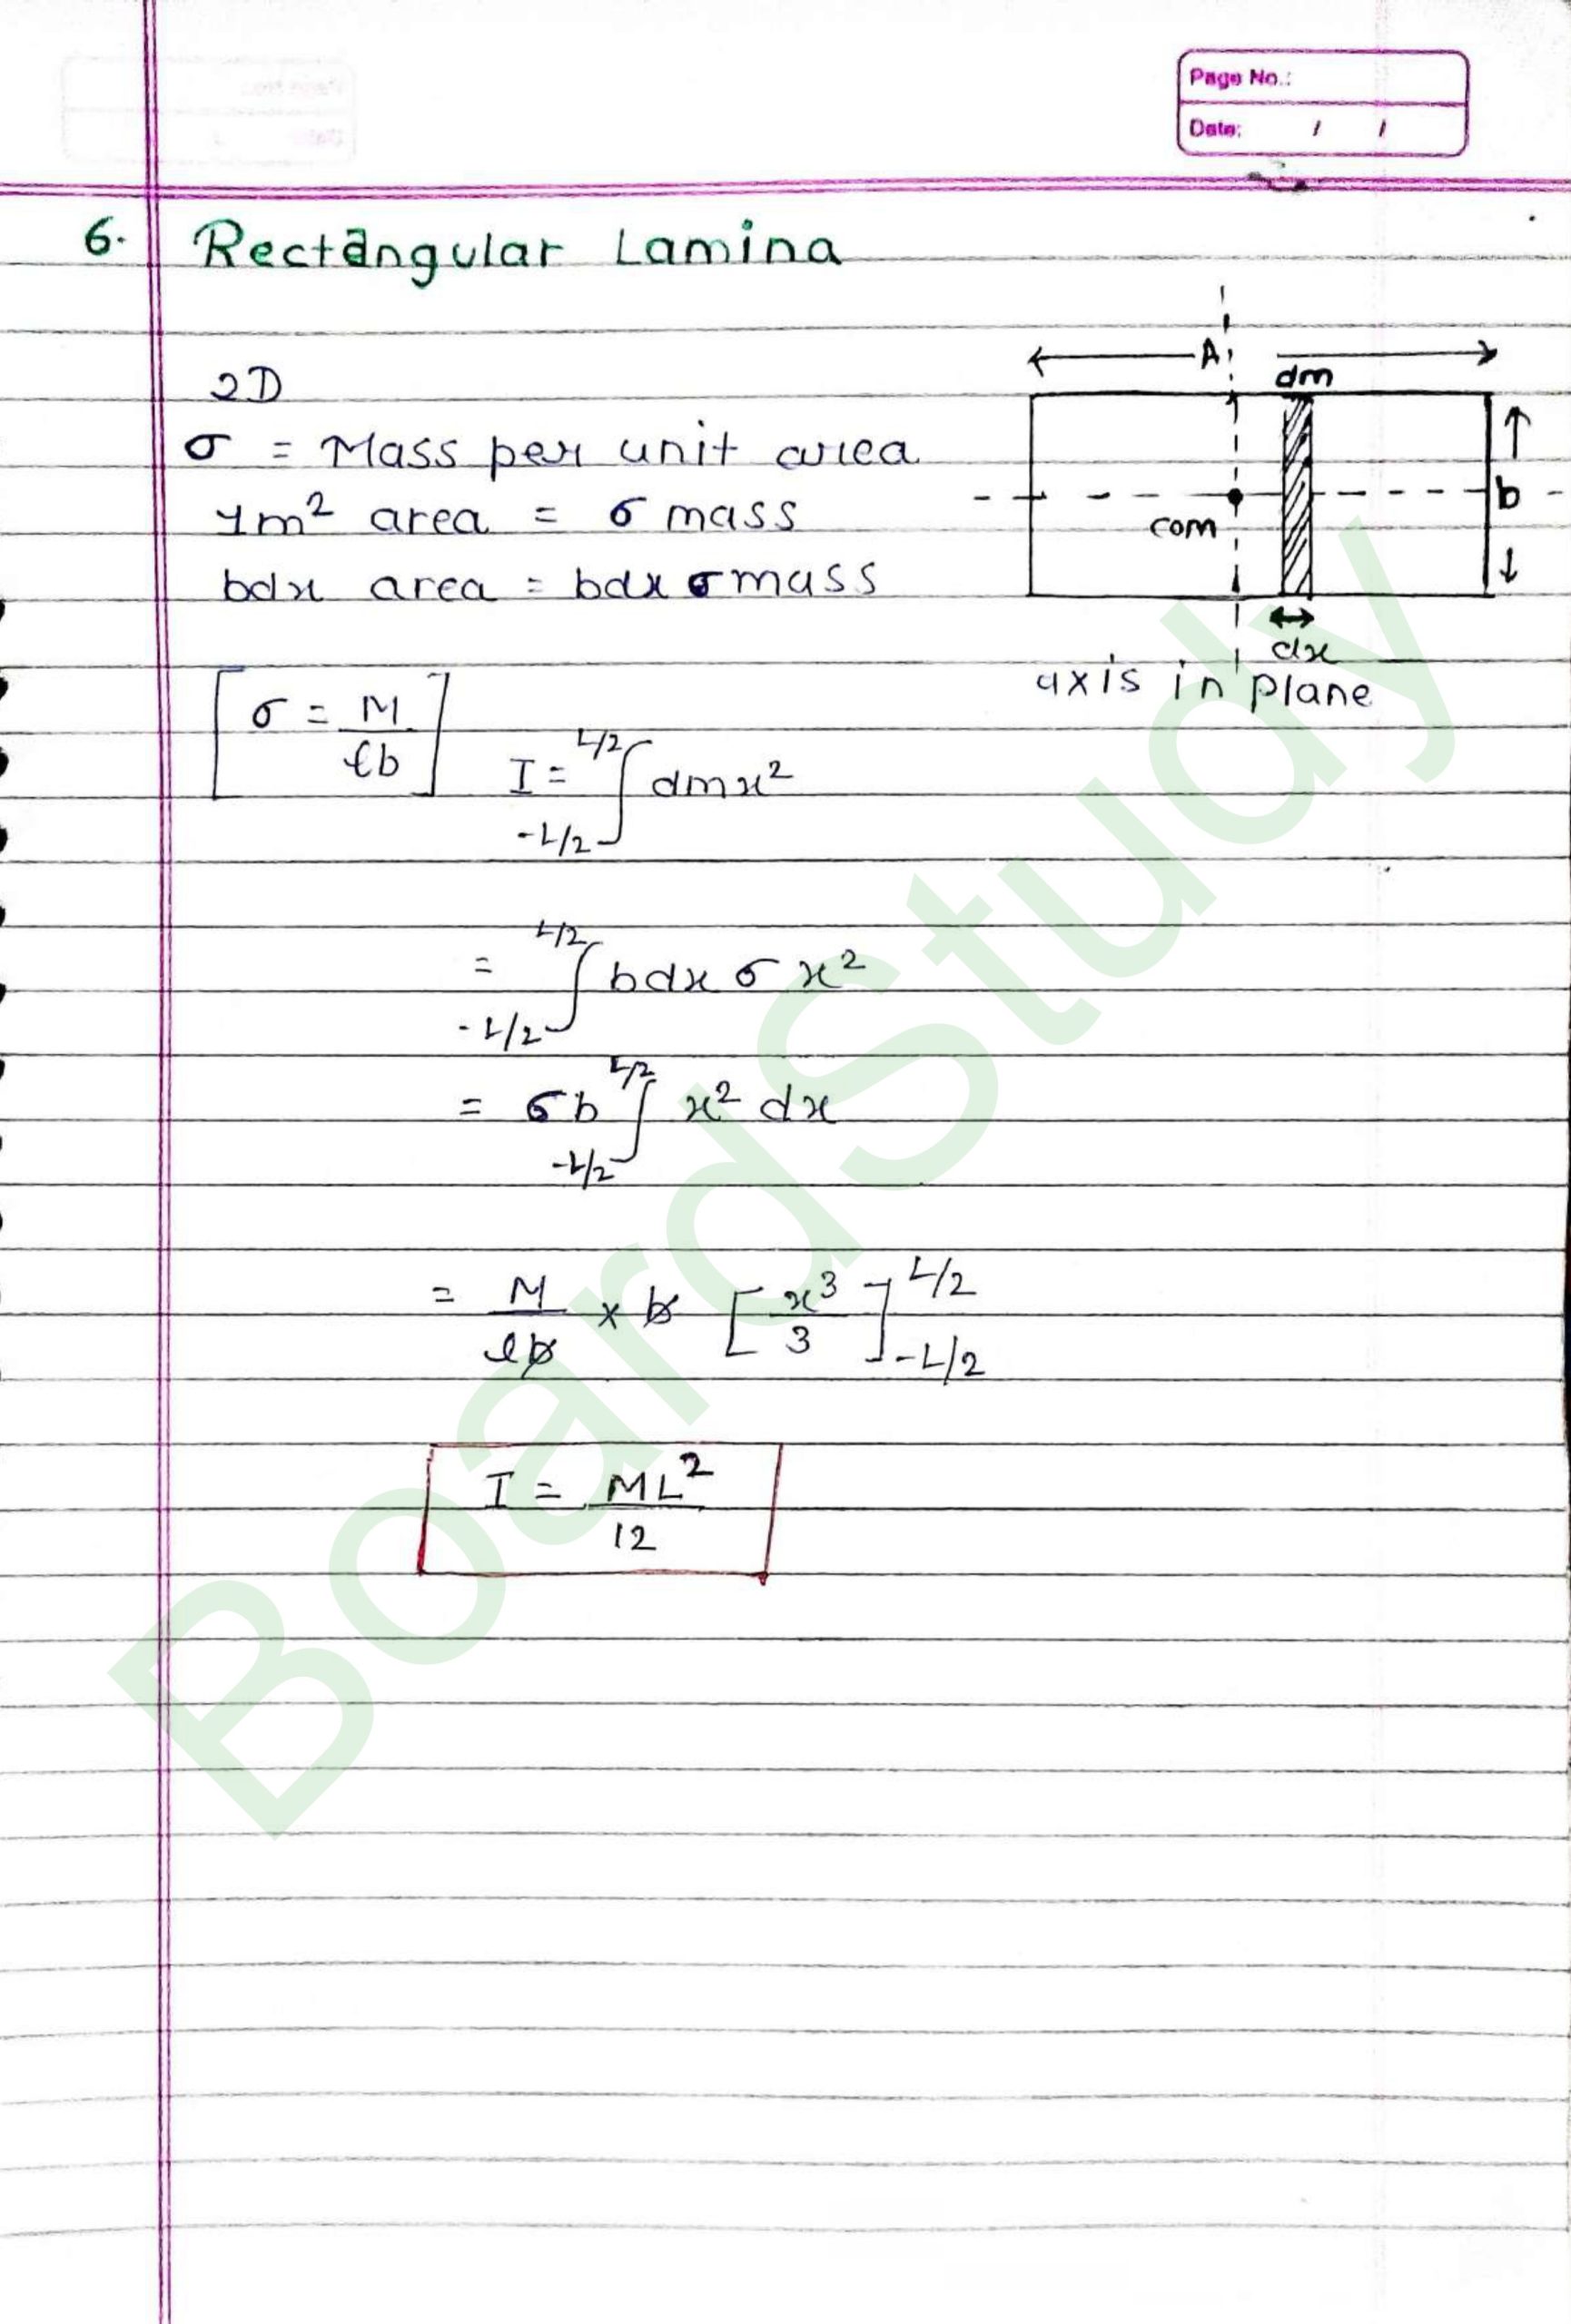 Page No.:
Date: / /
6. Rectangular Lamina
2D
σ = Mass per unit area
1m² area = σ mass
bdx area = bdx σ mass
A
dm
b
com
dx
axis in plane
[σ = M/ℓb]
I = ∫_{-L/2}^{L/2} dm x²
= ∫_{-L/2}^{L/2} bdx σ x²
= σb ∫_{-L/2}^{L/2} x² dx
= M/ℓb × b [x³/3]_{-L/2}^{L/2}
I = ML²/12
BoardStudy